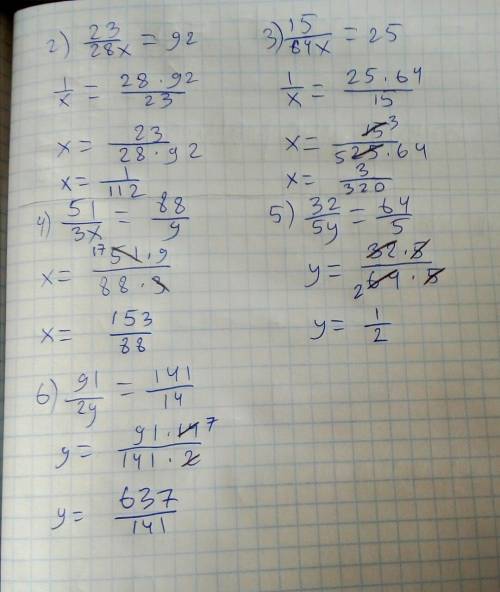 2) 23/28x = 92
1/x = 28 · 92/23
x = 23/28 · 92
x = 1/112
3) 15/64x = 25
1/x = 25 · 64/15
x = 15 3/5 25 · 64
x = 3/320
4) 51/3x = 88/9
x = 17 51 · 9/88 · 3
x = 153/88
5) 32/5y = 64/5
y = 32 · 5/2 64 · 5
y = 1/2
6) 91/2y = 141/14
y = 91 · 14 7/141 · 2
y = 637/141